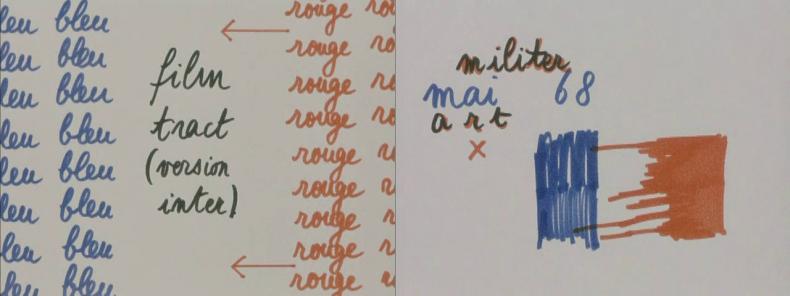 leu bleu
leu bleu
leu bleu
leu bleu
leu bleu
leu bleu
leu bleu
leu bleu
film
tract
(version
inter)
rouge ro
rouge ro
rouge
rouge
rouge
rouge
rouge
rouge
rouge
militer
mai 68
art
x